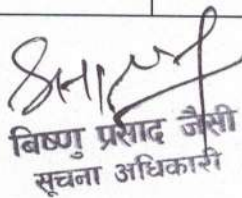 बिष्णु प्रसाद जैसी
सूचना अधिकारी